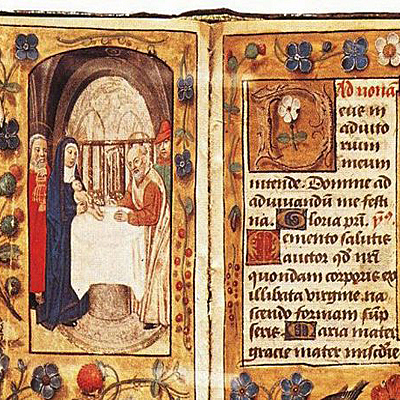 Ad nona
eus in
adiuto
rium
meum
intende. Domine ad
adiuvandū me festi
na. Gloria pri.
Memento salutis
auctor qd nr̄i
quondam corporis ex
illibata virgine na
scendo formam sūp
seris. Maria mater
gracie mater miscdie